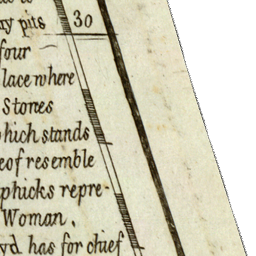 ny pits 30
four
lace where
Stones
hich stands
eof resemble
phicks repre-
Woman.
yd has for chief